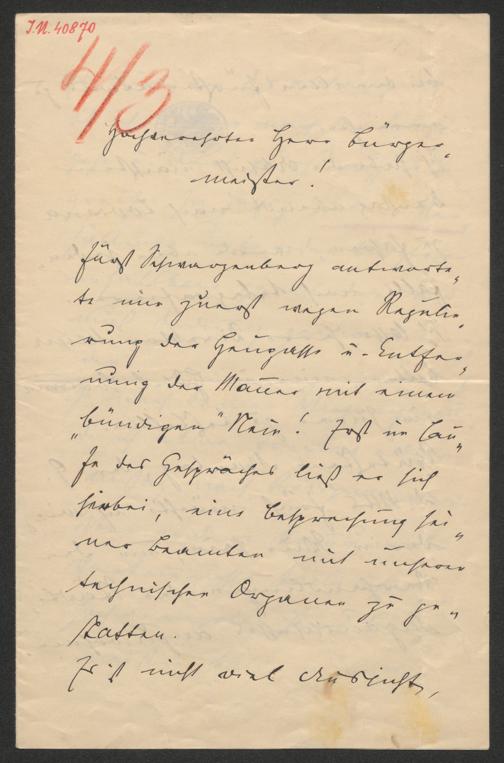 I.N. 40870
4/3
Hochverehrter Herr Bürger-
meister!
Fürst Schwarzenberg antworte-
te mir zuerst wegen Regulie-
rung der Heugasse u. Entfer-
nung der Mauer mit einem
„bündigen" Nein! Erst im Lau-
fe des Gespräches ließ er sich
herbei, eine Besprechung sei-
ner Beamten mit unseren
technischen Organen zu ge-
statten.
Es ist nicht viel Aussicht,